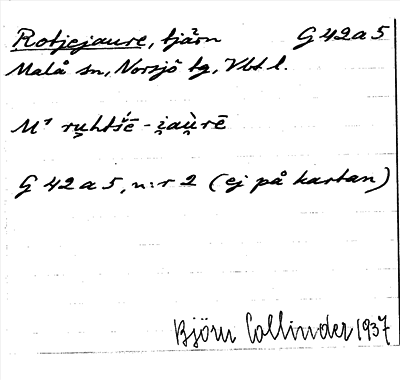 Rotjejaure, tjärn G 42 a 5
Malå sn, Norsjö tg, Vbt l.
M⁷ ru̯htš́ē - i̯au̯rē
G 42 a 5, n:r 2 (ej på kartan)
Björn Collinder 1937